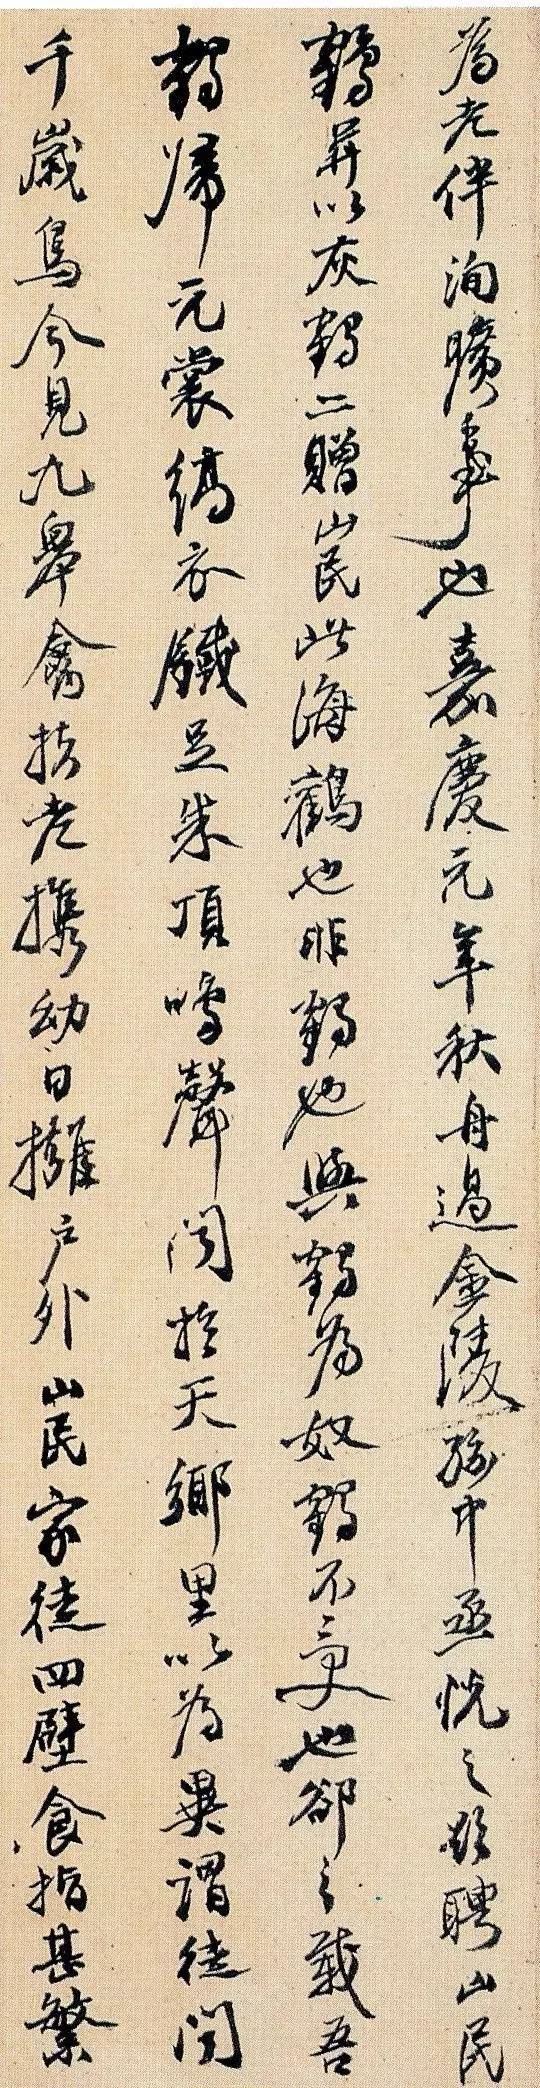 為老伴洵曠事也嘉慶元年秋舟過金陵孫中丞悅之欲聘山民
鶴并以灰鶴二贈山民此海鶴也非鶴也與鶴為奴鶴不受也卻之載吾
鶴歸元裳縞衣鐵足朱頂鳴聲聞於天鄉里以為異謂徒聞
千歲鳥今見九皋禽扶老攜幼日擁戶外山民家徒四壁食指甚繁